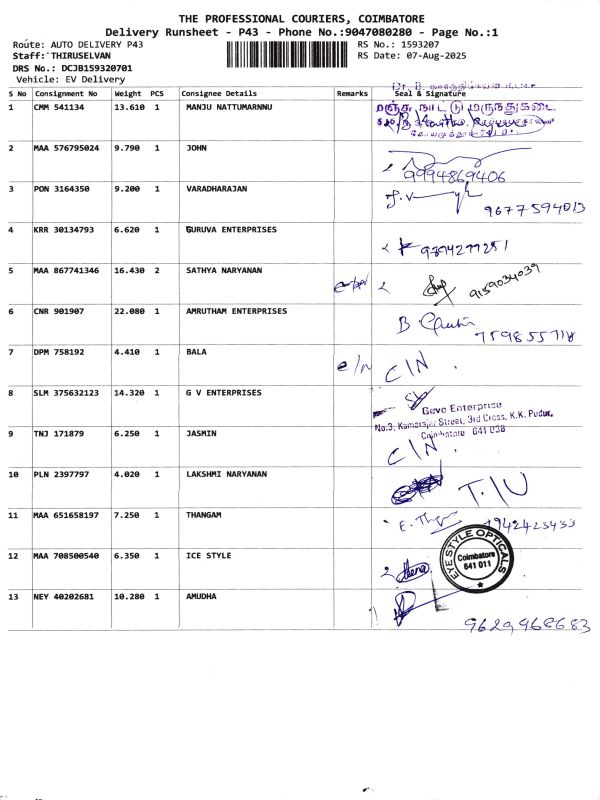 THE PROFESSIONAL COURIERS, COIMBATORE
Delivery Runsheet - P43 - Phone No.:9047080280 - Page No.:1
Route: AUTO DELIVERY P43 RS No.: 1593207
Staff: THIRUSELVAN RS Date: 07-Aug-2025
DRS No.: DCJB159320701
Vehicle: EV Delivery
S No Consignment No Weight PCS Consignee Details Remarks Seal & Signature
1 CMM 541134 13.610 1 MANJU NATTUMARNNU
மஞ்சு நாட்டு மருந்துகடை
2 MAA 576795024 9.790 1 JOHN 9994869406
3 PON 3164350 9.200 1 VARADHARAJAN J.V 9677594013
4 KRR 30134793 6.620 1 GURUVA ENTERPRISES 9394277251
5 MAA 867741346 16.430 2 SATHYA NARYANAN 9159034039
6 CNR 901907 22.080 1 AMRUTHAM ENTERPRISES B 7598557118
7 DPM 758192 4.410 1 BALA C/N
8 SLM 375632123 14.320 1 G V ENTERPRISES
Geve Enterprise
No.3, Kamarajar Street, 3rd Cross, K.K. Pudur,
Coimbatore 641 038
9 TNJ 171879 6.250 1 JASMIN C/N
10 PLN 2397797 4.020 1 LAKSHMI NARYANAN T.I/U
11 MAA 651658197 7.250 1 THANGAM
12 MAA 708500540 6.350 1 ICE STYLE
EYE STYLE OPTICALS
Coimbatore
641 011
13 NEY 40202681 10.280 1 AMUDHA 9629968683